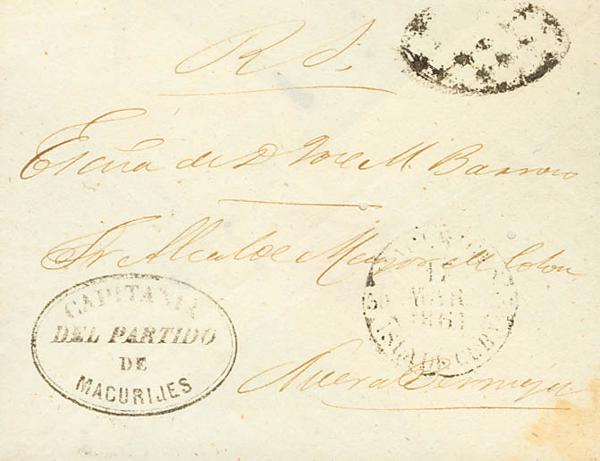 R. S.
de D. José M. Barroso
Sr. Alcalde Mayor de Colon
CAPITANIA
DEL PARTIDO
DE
MACURIJES
17
MAR
1861
ISLA DE CUBA
Nueva Bermeja